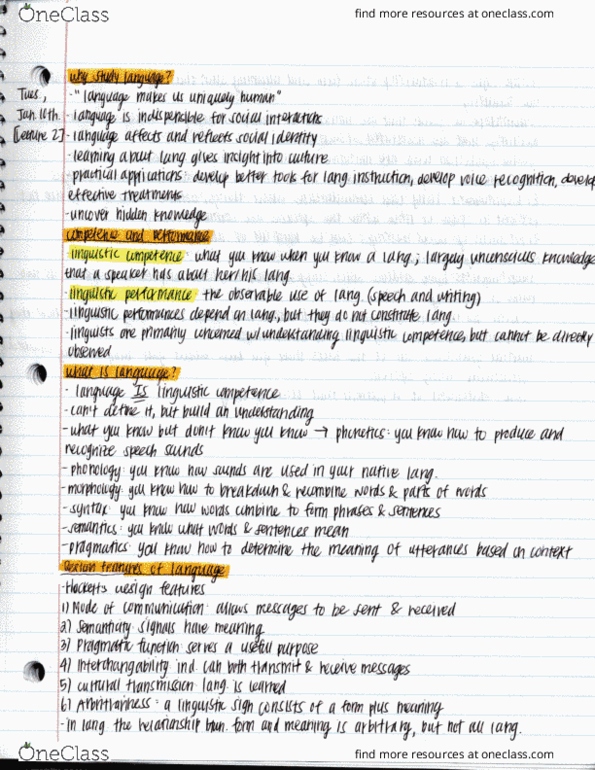 OneClass
find more resources at oneclass.com
why study language?
Tues., -" language makes us uniquely human"
Jan. 16th. - language is indispensible for social interactions
[Lecture 2] - language affects and reflects social identity
- learning about lang gives insight into culture
- practical applications: develop better tools for lang instruction, develop voice recognition, develop
effective treatments
- uncover hidden knowledge
competence and performance
- linguistic competence: what you know when you know a lang.; largely unconscious knowledge
that a speaker has about her/his lang.
- linguistic performance: the observable use of lang. (speech and writing)
- linguistic performances depend on lang., but they do not constitute lang.
- linguists are primarily concerned w/understanding linguistic competence, but cannot be directly
observed
what is language?
- language IS linguistic competence
- can't define it, but build an understanding
- what you know but don't know you know → phonetics: you know how to produce and
recognize speech sounds
- phonology: you know how sounds are used in your native lang.
- morphology: you know how to breakdown & recombine words & parts of words
- syntax: you know how words combine to form phrases & sentences
- semantics: you know what words & sentences mean
- pragmatics: you know how to determine the meaning of utterances based on context
Design features of language
- Hockett's design features
1) Mode of communication: allows messages to be sent & received
2) Semanticity: signals have meaning
3) Pragmatic function: serves a useful purpose
4) Interchangability: ind. can both transmit & receive messages
5) cultural transmission: lang. is learned
6) Arbitrariness: a linguistic sign consists of a form plus meaning
- In lang. the relationship btwn. form and meaning is arbitrary, but not all lang.
OneClass
find more resources at oneclass.com